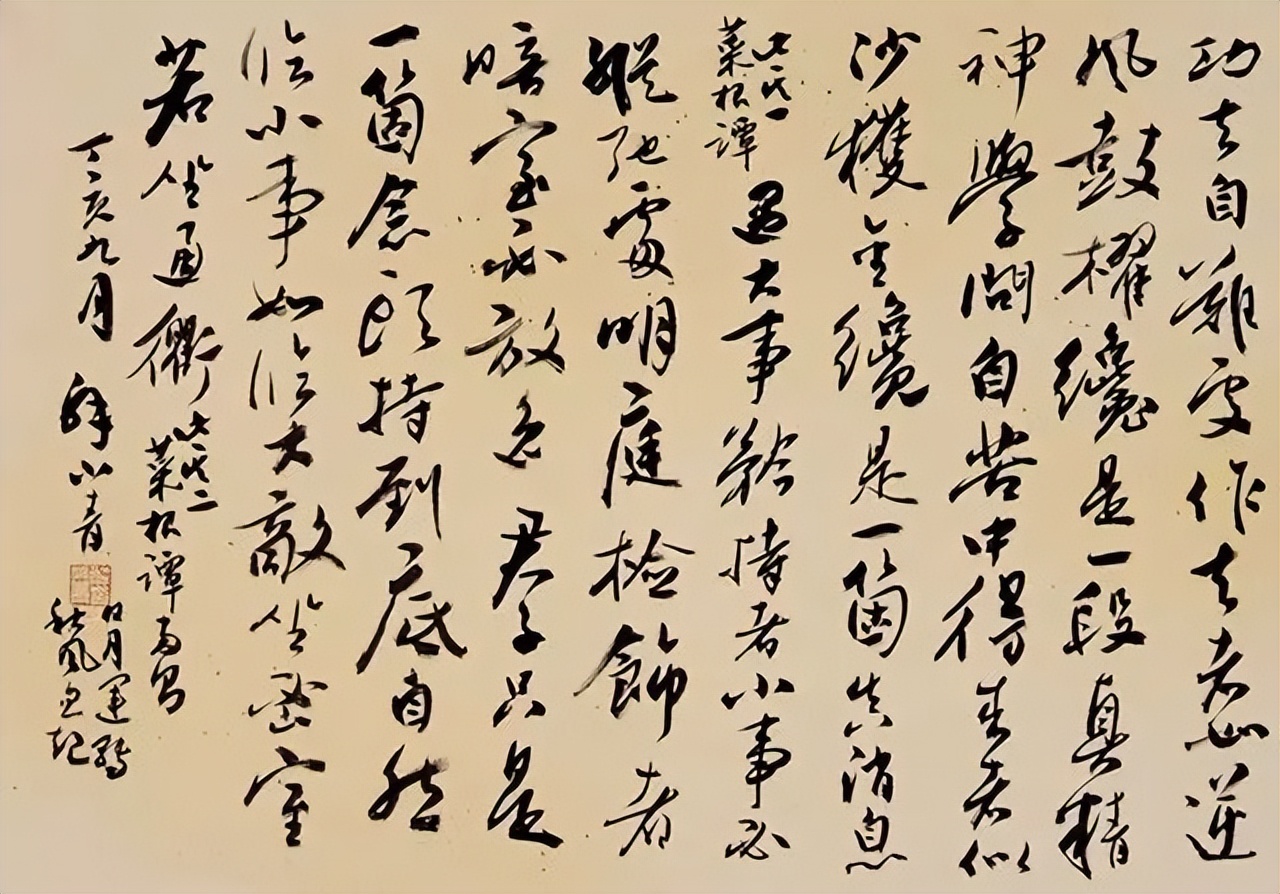 功夫自難處作去者如逆
風鼓櫂纔是一段真精
神學問自苦中得來者似
沙獲金纔是一箇真消息
此其一
菜根譚
遇大事矜持者小事必
縱弛處明庭檢飾者
暗室必放逸君子只是
一箇念頭持到底自然
臨小事如臨大敵坐密室
若坐通衢
此其二
菜根譚
丁亥九月
日月運轉
秋風